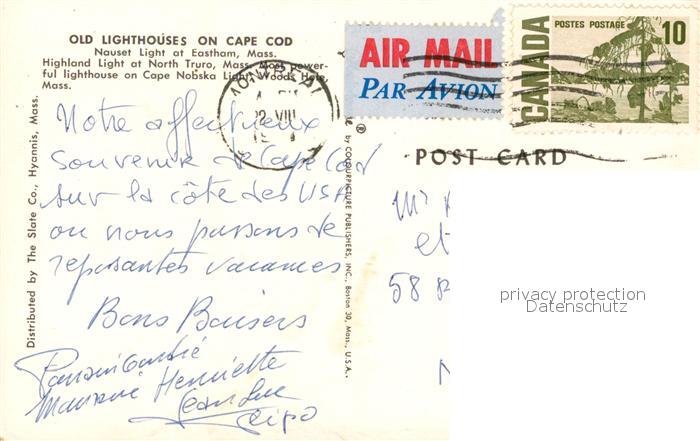 OLD LIGHTHOUSES ON CAPE COD
Nauset Light at Eastham, Mass.
Highland Light at North Truro, Mass. Most power-
ful lighthouse on Cape Nobska Light, Woods Hole,
Mass.
Notre affectueux
souvenir de Cape Cod
sur la côte des USA
où nous passons de
reposantes vacances
Bons Baisers
Henriette
Jean Luc
Distributed by The Slate Co., Hyannis, Mass.
by COLOURPICTURE PUBLISHERS, INC., Boston 30, Mass., U.S.A.
AIR MAIL
PAR AVION
MONTREAL
22 VIII
POSTES POSTAGE
10
CANADA
POST CARD
Mr
et
58
privacy protection
Datenschutz